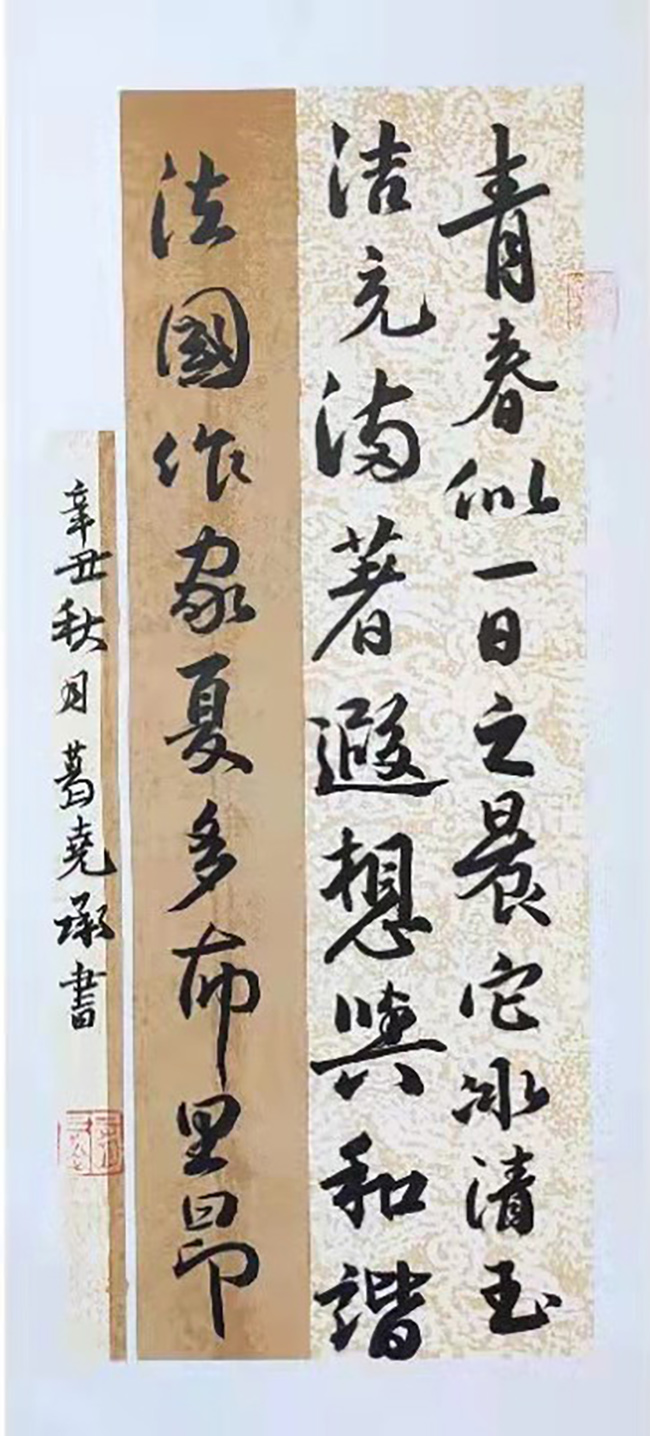 青春似一日之晨它冰清玉
洁充满著遐想與和谐
法國作家夏多布里昂
辛丑秋月葛尧承書